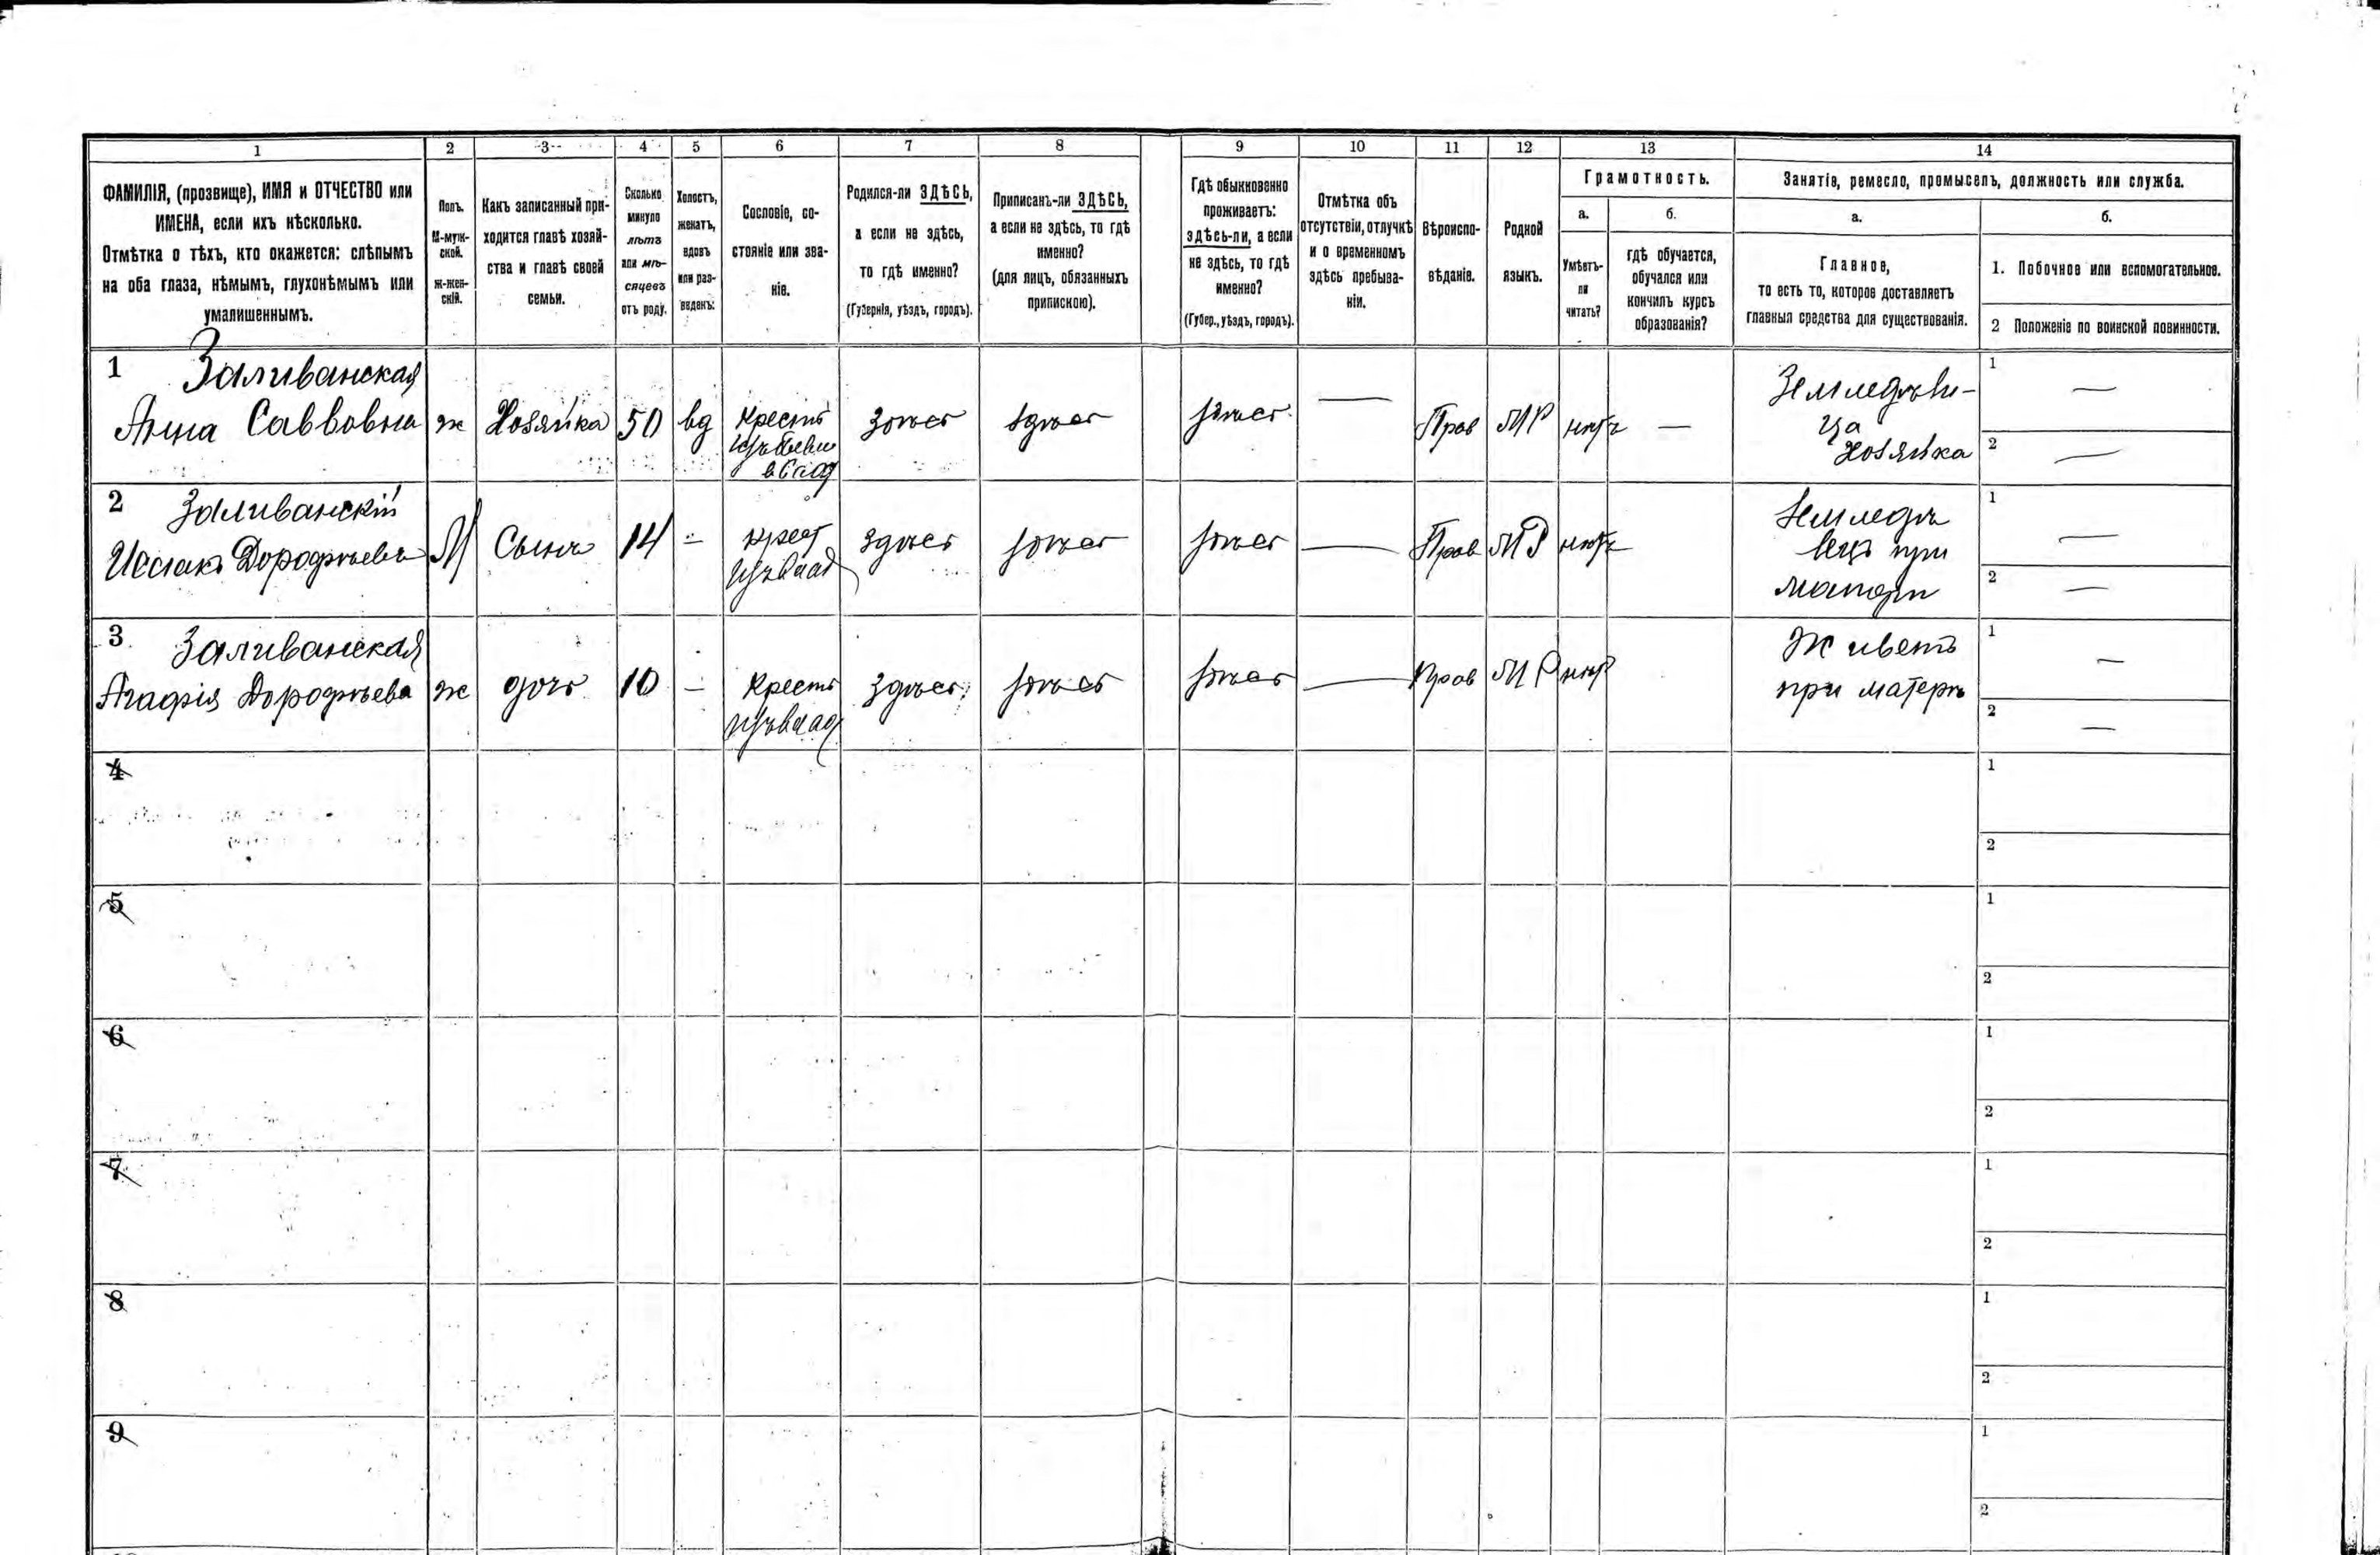 1 2 3 4 5 6 7 8 9 10 11 12 13 14
ФАМИЛІЯ, (прозвище), ИМЯ и ОТЧЕСТВО или
ИМЕНА, если ихъ нѣсколько.
Отмѣтка о тѣхъ, кто окажется: слѣпымъ
на оба глаза, нѣмымъ, глухонѣмымъ или
умалишеннымъ.
Полъ.
М-муж-
ской.
ж-жен-
скій.
Какъ записанный при-
ходится главѣ хозяй-
ства и главѣ своей
семьи.
Сколько
минуло
лѣтъ
или мѣ-
сяцевъ
отъ роду.
Холостъ,
женатъ,
вдовъ
или раз-
веденъ:
Сословіе, со-
стояніе или зва-
ніе.
Родился-ли ЗДѢСЬ,
а если не здѣсь,
то гдѣ именно?
(Губернія, уѣздъ, городъ).
Приписанъ-ли ЗДѢСЬ,
а если не здѣсь, то гдѣ
именно?
(для лицъ, обязанныхъ
припискою).
Гдѣ обыкновенно
проживаетъ:
здѣсь-ли, а если
не здѣсь, то гдѣ
именно?
(Губер., уѣздъ, городъ).
Отмѣтка объ
отсутствіи, отлучкѣ
и о временномъ
здѣсь пребыва-
ніи.
Вѣроиспо-
вѣданіе.
Родной
языкъ.
Грамотность.
а.
Умѣетъ-
ли
читать?
б.
гдѣ обучается,
обучался или
кончилъ курсъ
образованія?
Занятіе, ремесло, промыселъ, должность или служба.
а.
Главное,
то есть то, которое доставляетъ
главныя средства для существованія.
б.
1. Побочное или вспомогательное.
2 Положеніе по воинской повинности.
1 Заливанская
Анна Саввовна
ж
Хозяйка
50
вд
Крестъ
здѣсь
здѣсь
здѣсь
—
Прав
МР
нѣтъ
—
Земледѣли-
ца
Хозяйка
1 —
2 —
2 Заливанскій
Исаакъ Дорофѣевъ
М
Сынъ
14
–
Крест
здѣсь
здѣсь
здѣсь
—
Прав
МР
нѣтъ
Земледѣ
лецъ при
матери
1 —
2 —
3 Заливанская
Агафія Дорофѣева
ж
дочь
10
–
Крестъ
здѣсь
здѣсь
здѣсь
—
Прав
МР
нѣтъ
Живетъ
при матерѣ
1 —
2 —
4
1
2
5
1
2
6
1
2
7
1
2
8
1
2
9
1
2